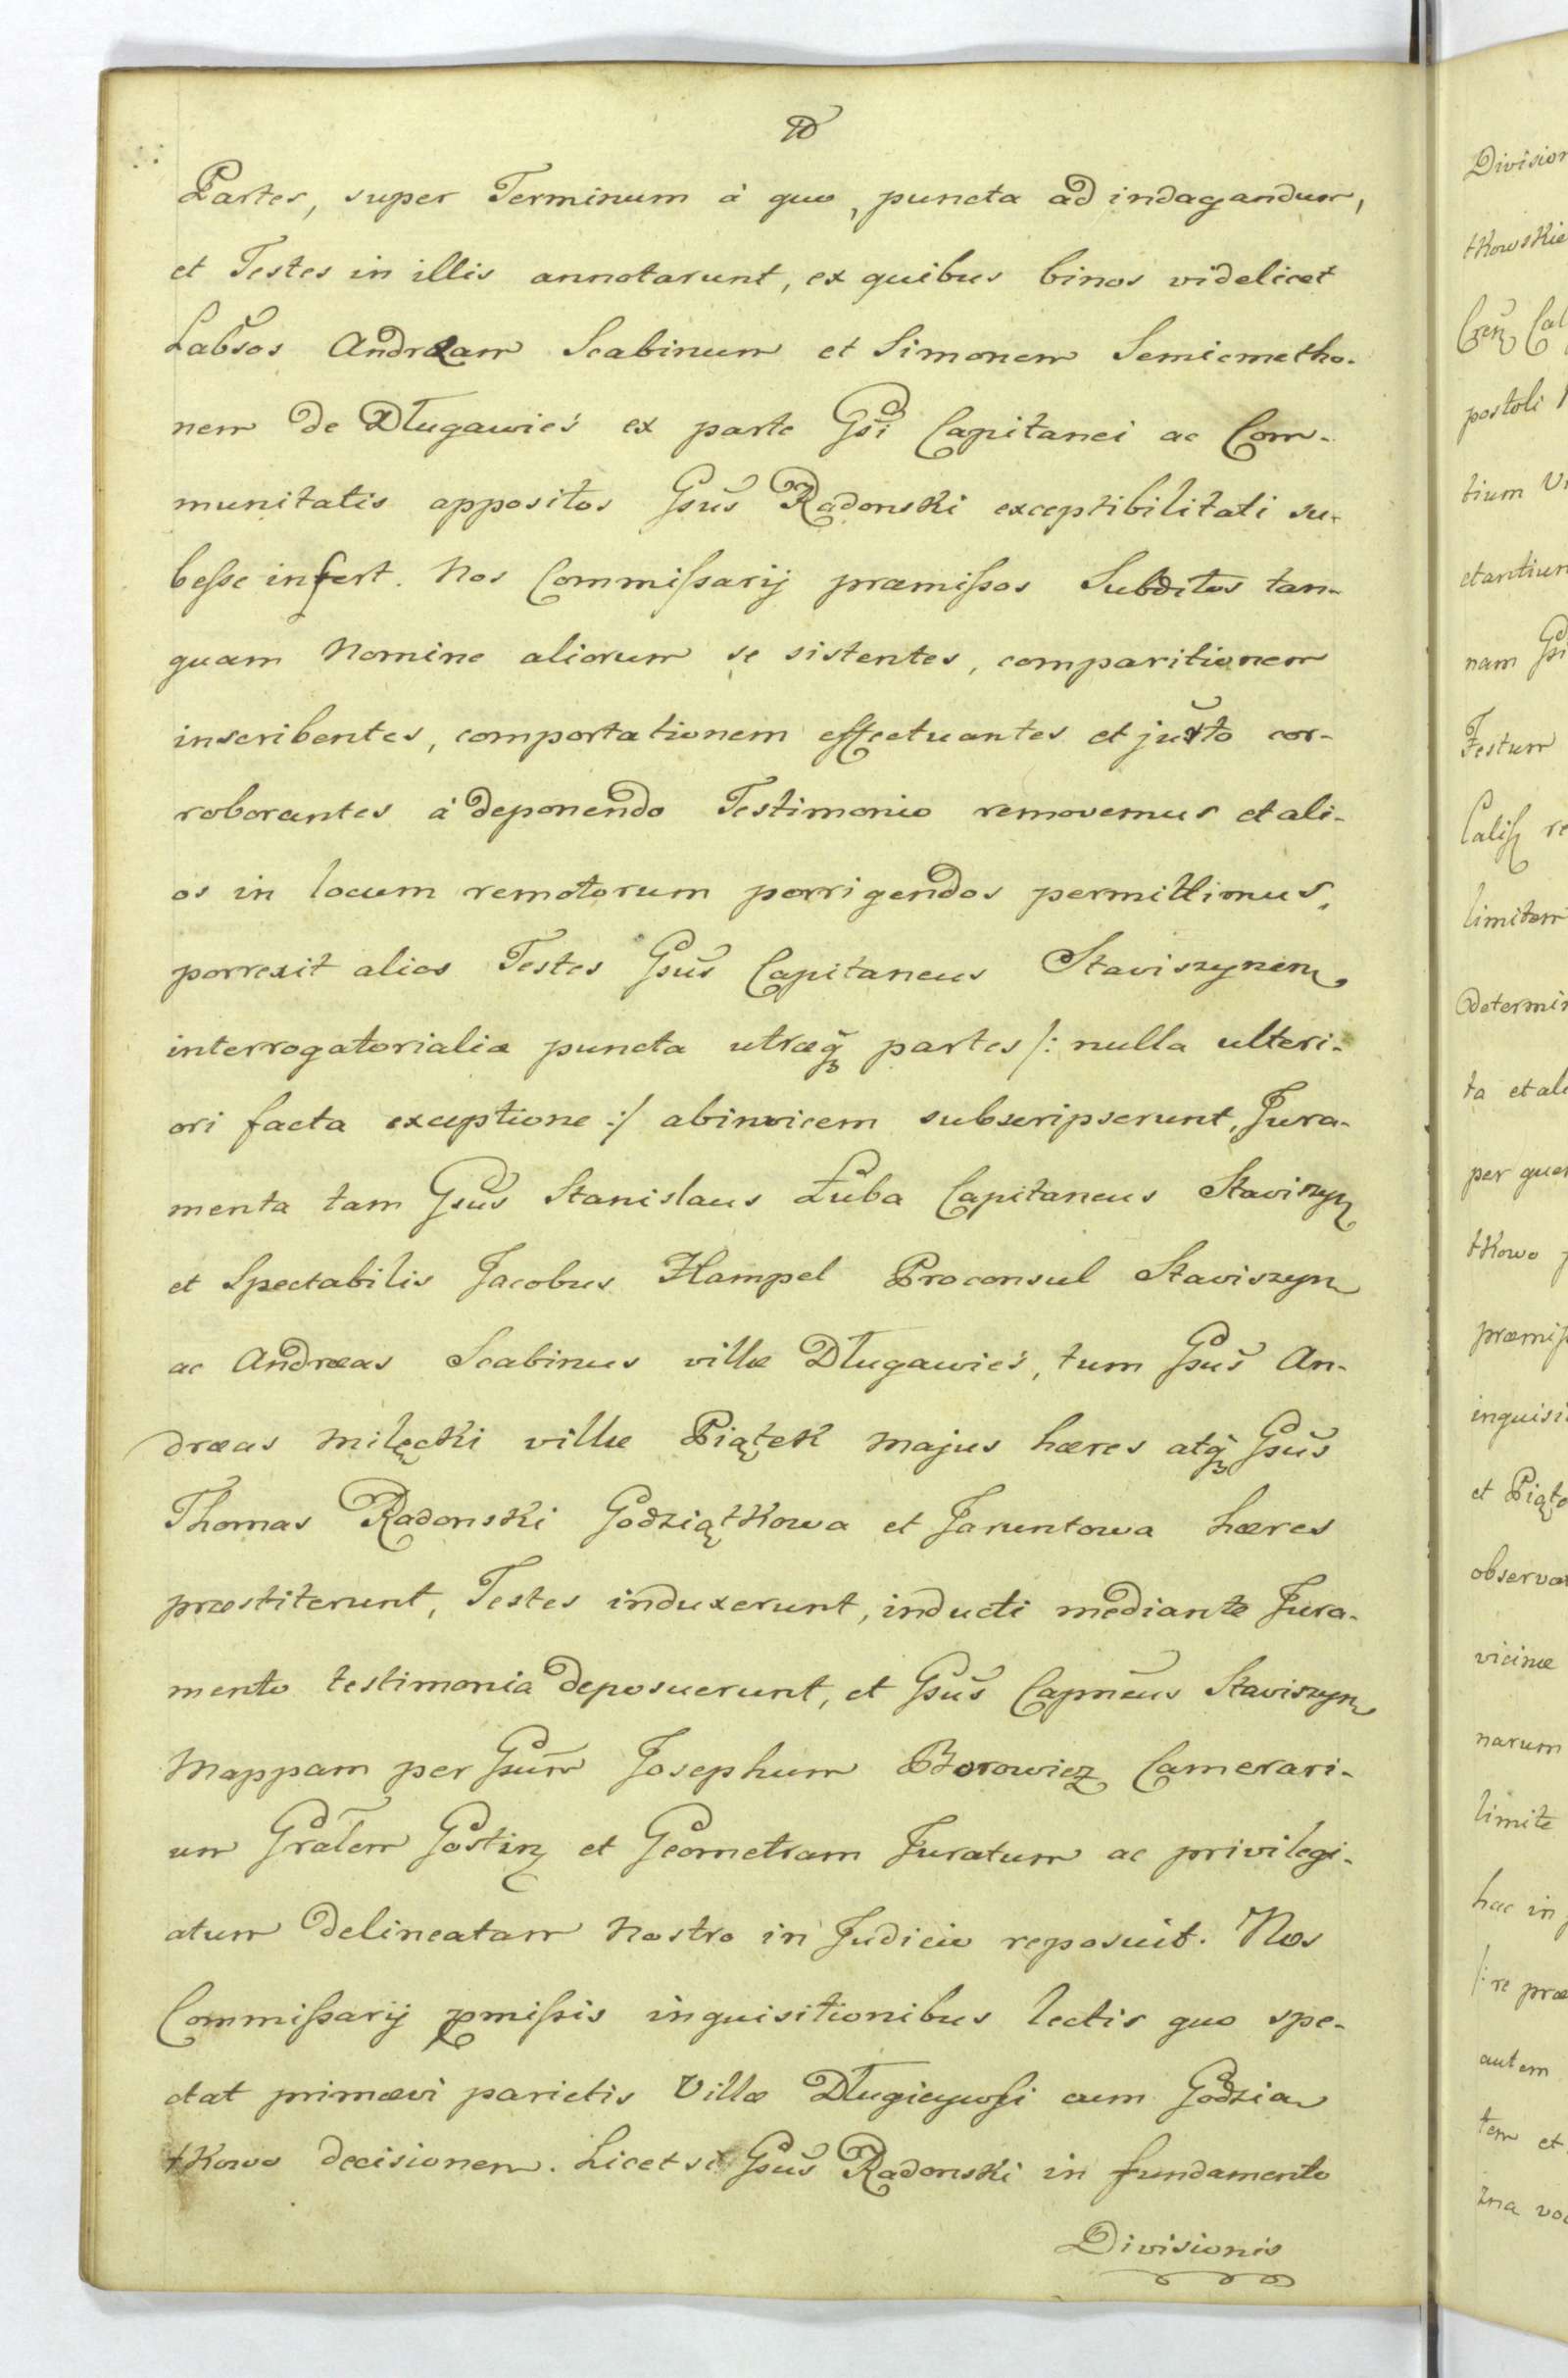 Partes, super Terminum à quo, puncta ad indagandum,
et Testes in illis annotarunt, ex quibus binos videlicet
Labsos Andræam Scabinum et Simonem Semicmetho-
nem de Długawieś ex parte Gsi Capitanei ac Com-
munitatis appositos Gsus Radonski exceptibilitati su-
beſse infert. Nos Commiſsarij præmiſsos Subditos tan-
quam Nomine aliorum se sistentes, comparitionem
inscribentes, comportationem effectuantes et jurto cor-
roborantes à deponendo Testimonio removemus et ali-
os in locum remotorum porrigendos permittimus,
porrexit alios Testes Gsus Capitaneus Staviszynen,
interrogatorialia puncta utræq partes /: nulla ulteri-
ori facta exceptione :/ abinvicem subscripserunt, Jura-
menta tam Gsus Stanislaus Łuba Capitaneus Staviszyn
et Spectabilis Jacobus Hampel Proconsul Staviszyn
ac Andræas Scabinus villæ Długawieś, tum Gsus An-
dræas Milęcki villæ Piątek majus hæres atq Gsus
Thomas Radonski Godziątkowa et Jaruntowa hæres
præstiterunt, Testes induxerunt, inducti mediante Jura-
mento testimonia deposuerunt, et Gsus Capneus Staviszyn
Mappam per Gsum Josephum Borowicz Camerari-
um Gralem Gostin et Geometram Juratum ac privilegi-
atum delineatam Nostro in Judicio reposuit. Nos
Commiſsarij pmiſsis inquisitionibus lectis quo spe-
ctat primævi parietis Villæ Długieywsi cum Godzia
tkowo decisionem. Licet si Gsus Radonski in fundamento
Divisionis
Division
tkowskie
Cren Cal
postoli
tium
etantium
nam Gsi
Festum
Caliſ re
limitem
determin
ta et al
per quem
tkowo
præmiſ
inquisi
et Piąte
observa
vicinæ
narum
limite
hac in
/: re præ
autem
tem et
zna vo